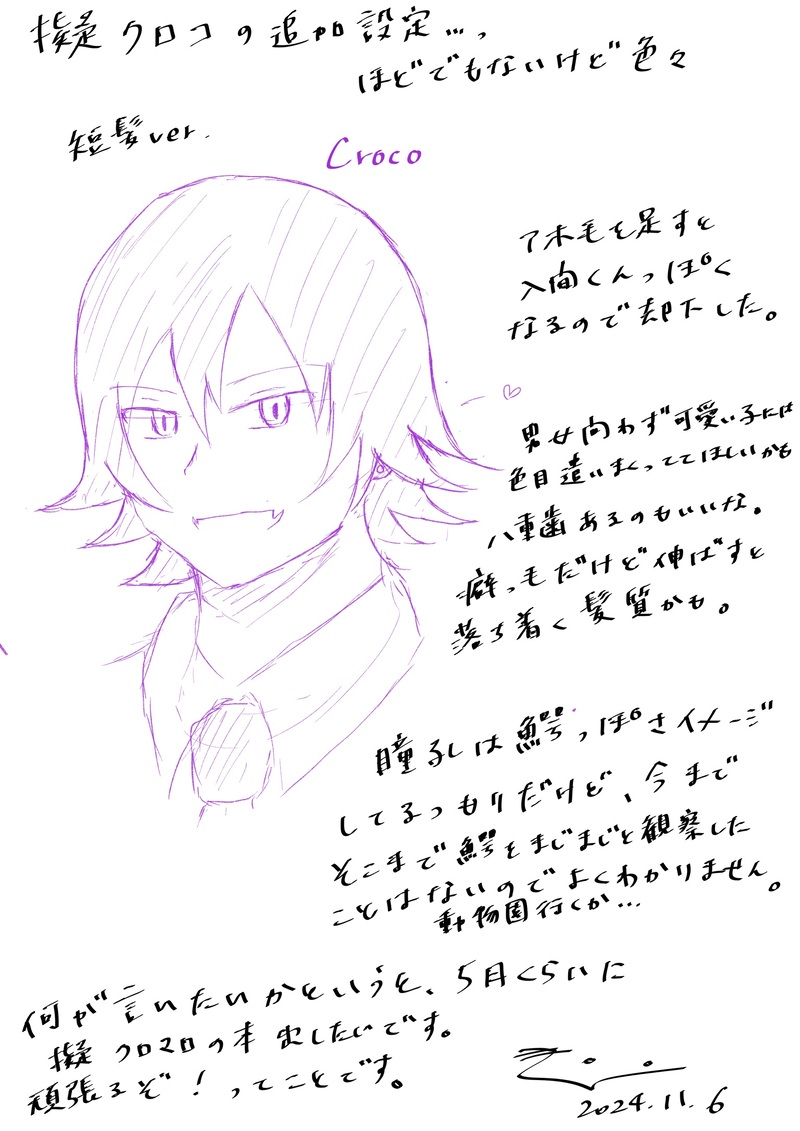 擬クロコの追加設定…、
ほどでもないけど色々
短髪ver.
Croco
アホ毛を足すと
入間くんっぽく
なるので却下した。
男女問わず可愛い子には
色目遣いまくっててほしいかも
八重歯あるのもいいな。
癖っ毛だけど伸ばすと
落ち着く髪質かも。
瞳孔は鰐っぽさイメージ
してるつもりだけど、今まで
そこまで鰐をまじまじと観察した
ことはないのでよくわかりません。
動物園行くか…
何が言いたいかというと、5月くらいに
擬クロマロの本出したいです。
頑張るぞ!ってことです。
2024.11.6